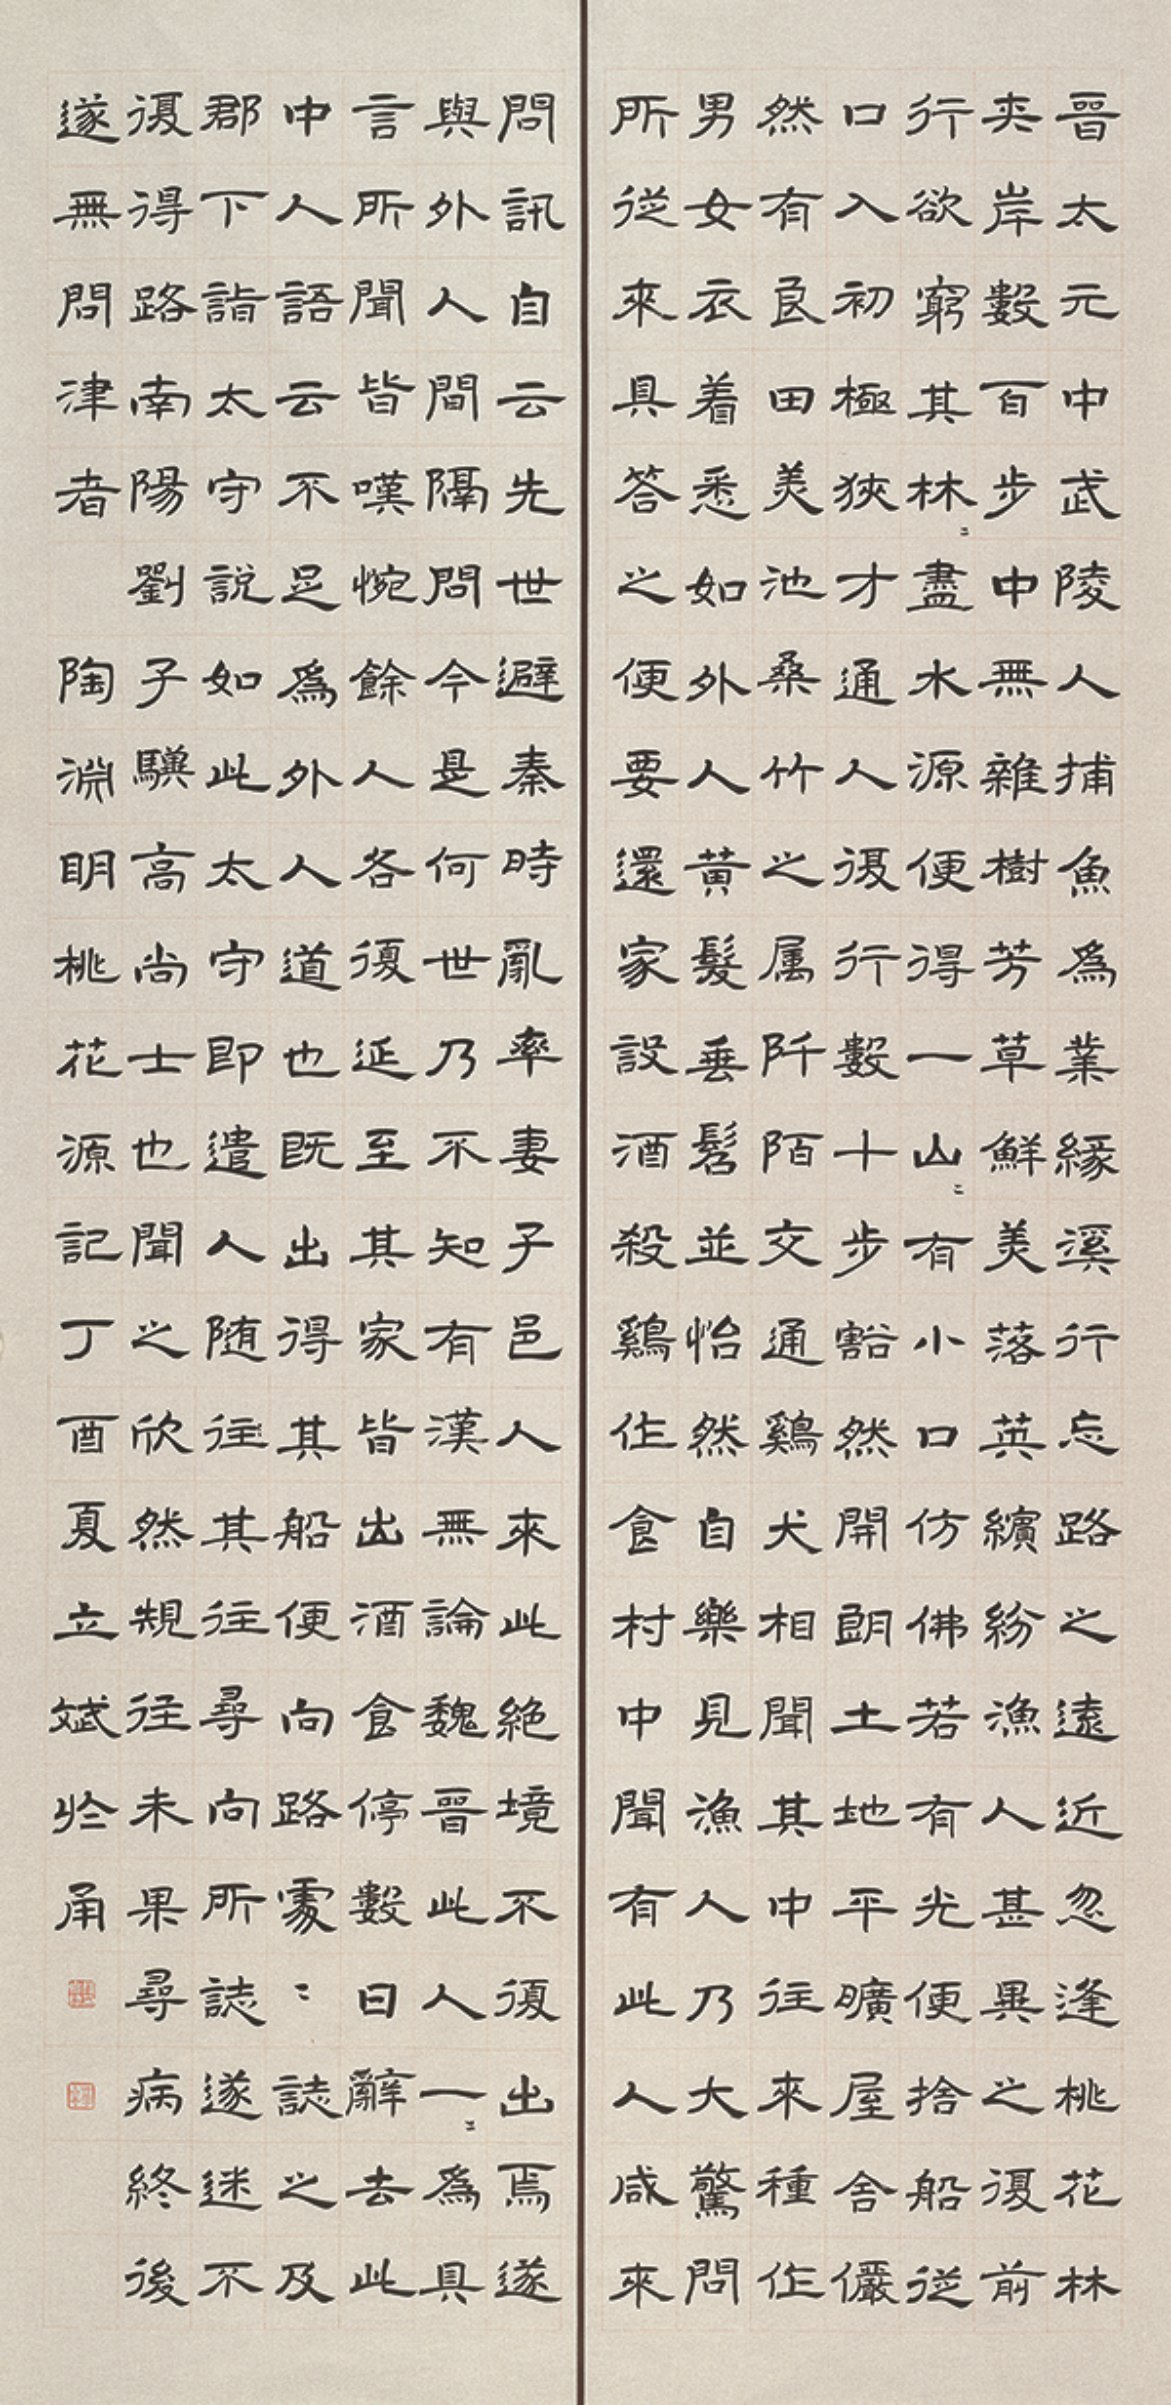 晉太元中武陵人捕魚爲業緣溪行忘路之遠近忽逢桃花林
夾岸數百步中無雜樹芳草鮮美落英繽紛漁人甚異之復前
行欲窮其林〻盡水源便得一山〻有小口仿佛若有光便捨船從
口入初極狹才通人復行數十步豁然開朗土地平曠屋舍儼
然有良田美池桑竹之属阡陌交通鷄犬相聞其中往來種作
男女衣着悉如外人黄髮垂髫並怡然自樂見漁人乃大驚問
所從來具答之便要還家設酒殺鷄作食村中聞有此人咸來
問訊自云先世避秦時亂率妻子邑人來此絶境不復出焉遂
與外人間隔問今是何世乃不知有漢無論魏晉此人一〻爲具
言所聞皆嘆惋餘人各復延至其家皆出酒食停數日辭去此
中人語云不足爲外人道也既出得其船便向路處〻誌之及
郡下詣太守說如此太守即遣人随往其往尋向所誌遂迷不
復得路南陽劉子驥高尚士也聞之欣然規往未果尋病終後
遂無問津者 陶淵明桃花源記丁酉夏立斌於甬